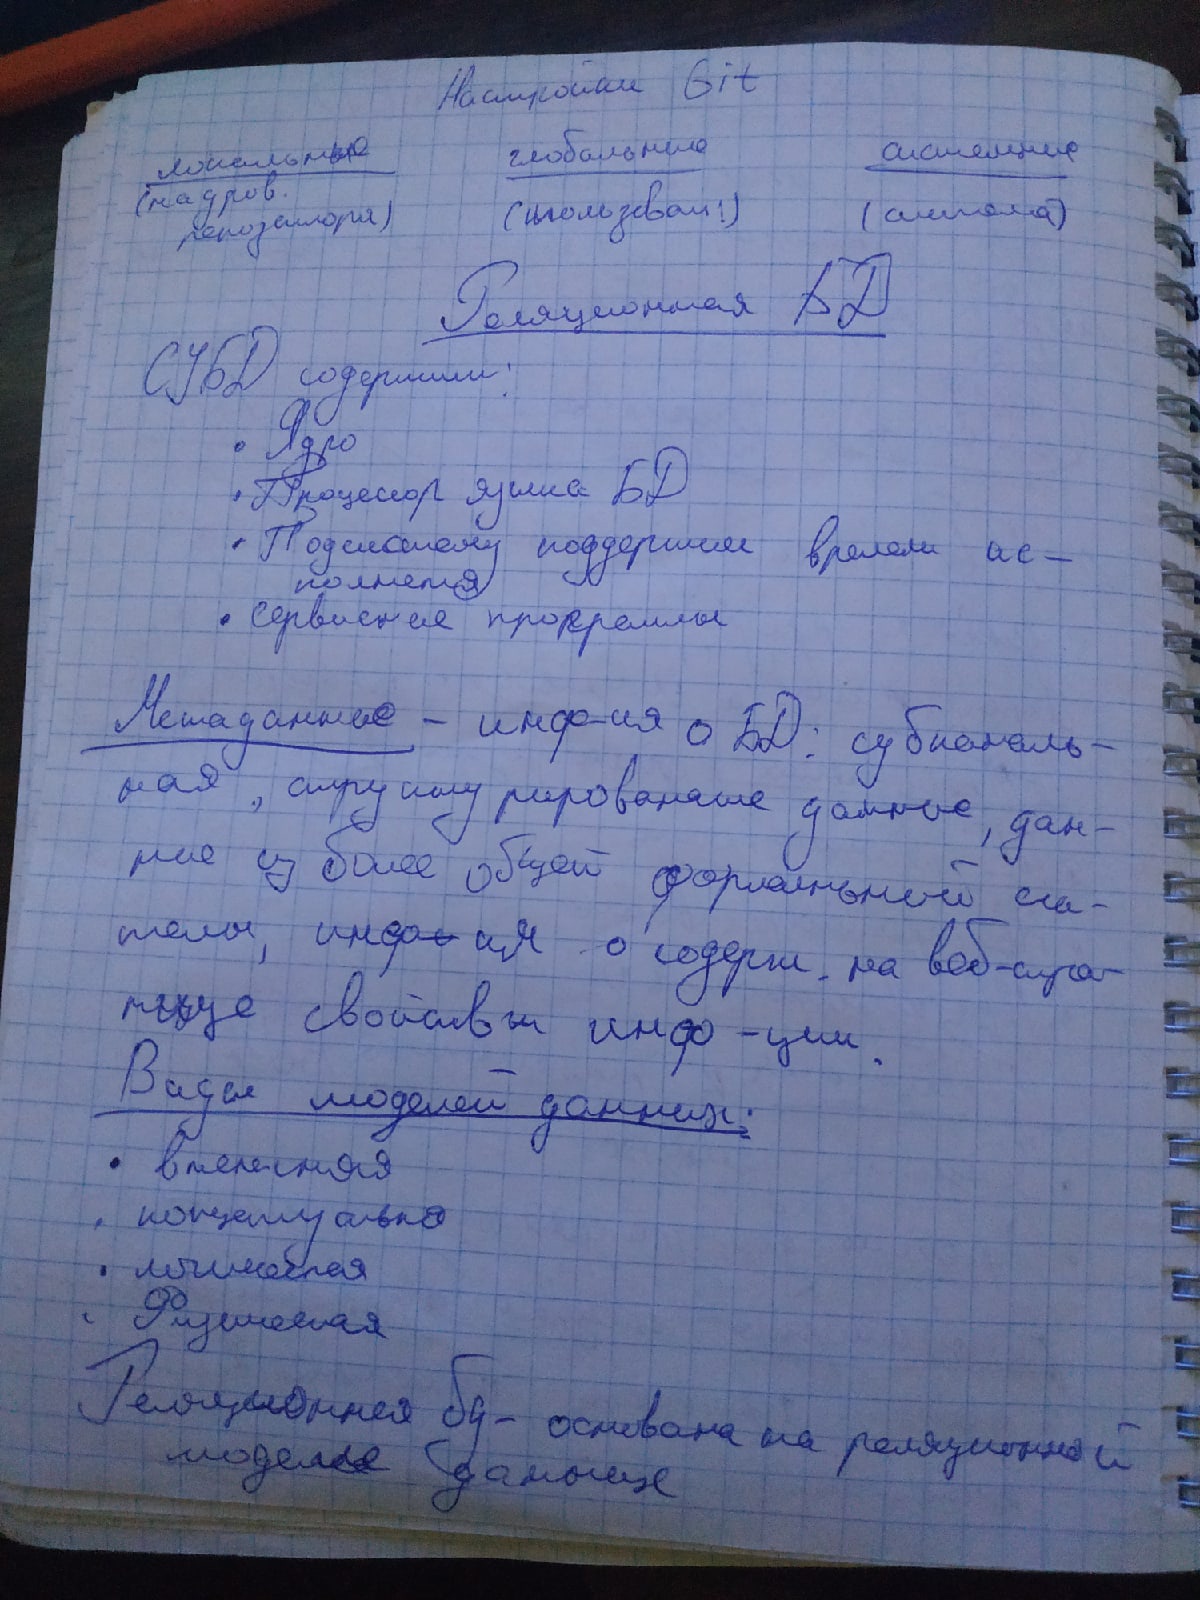 Настройки Git
локальные глобальные системные
(на уров.
репозитория) (пользоват.) (система)
Реляционная БД
СУБД содержит:
• Ядро
• Процессор языка БД
• Подсистему поддержки времени ис-
полнения
• сервисные программы
Метаданные – инфо-ия о БД: субканаль-
ная, структурированные данные, дан-
ные из более общей формальной сис-
темы, инфо-ция о содерж. на веб-стра-
нице свойствы инфо-ции.
Виды моделей данных:
• внешняя
• концептуально
• логическая
• Физическая
Реляционная бд – основана на реляционной
модели данных